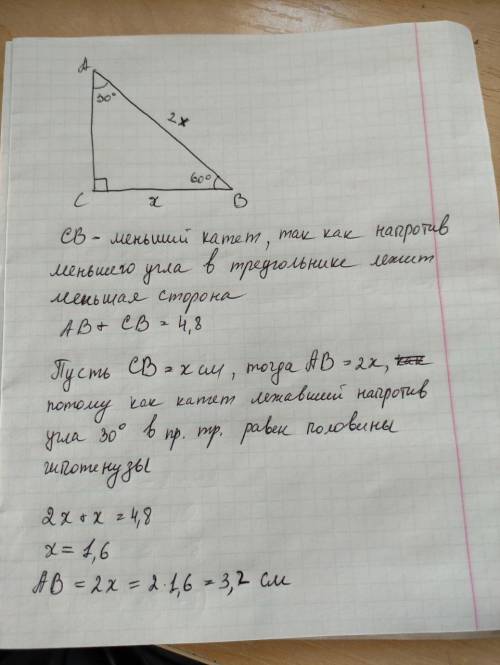 A
30°
2x
60°
C
x
B
CB - меньший катет, так как напротив
меньшего угла в треугольнике лежит
меньшая сторона
AB + CB = 4,8
Пусть CB = x см, тогда AB = 2x, как
потому как катет лежавший напротив
угла 30° в пр. тр. равен половины
гипотенузы
2x + x = 4,8
x = 1,6
AB = 2x = 2·1,6 = 3,2 см